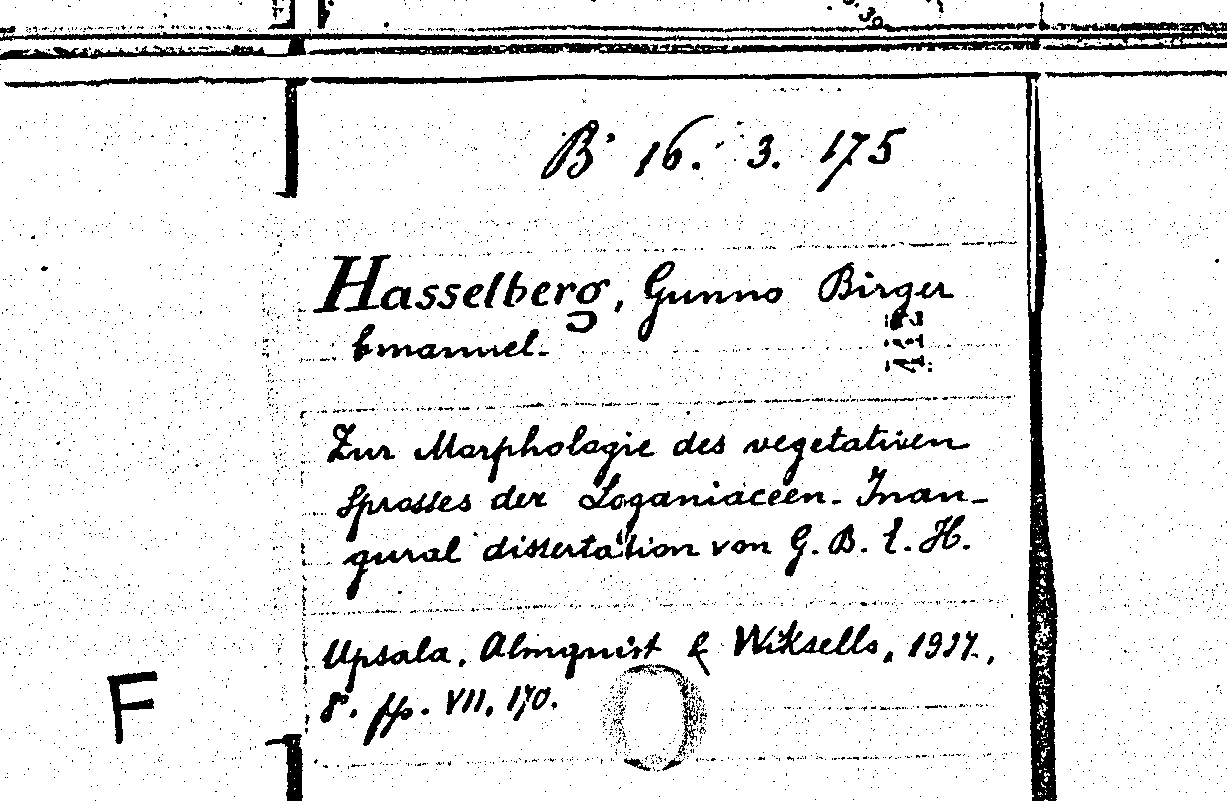 B 16. 3. 175
Hasselberg, Gunno Birger
Emanuel.
Zur Morphologie des vegetativen
Sprosses der Loganiaceen. Inau-
gural dissertation von G. B. E. H.
Upsala, Almquist & Wiksells, 1937.,
8°. pp. VII, 170.
F